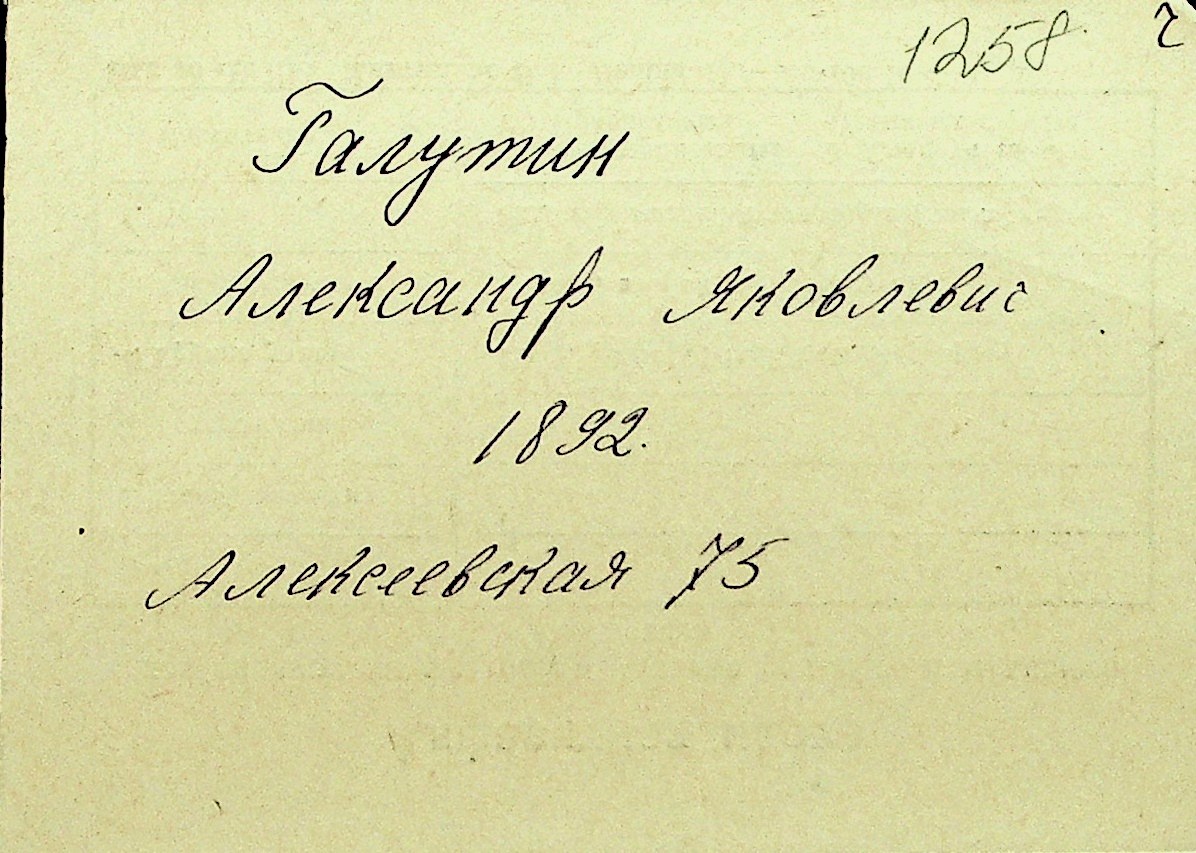 1258
Галутин
Александр Яковлевич
1892.
Алексеевская 75